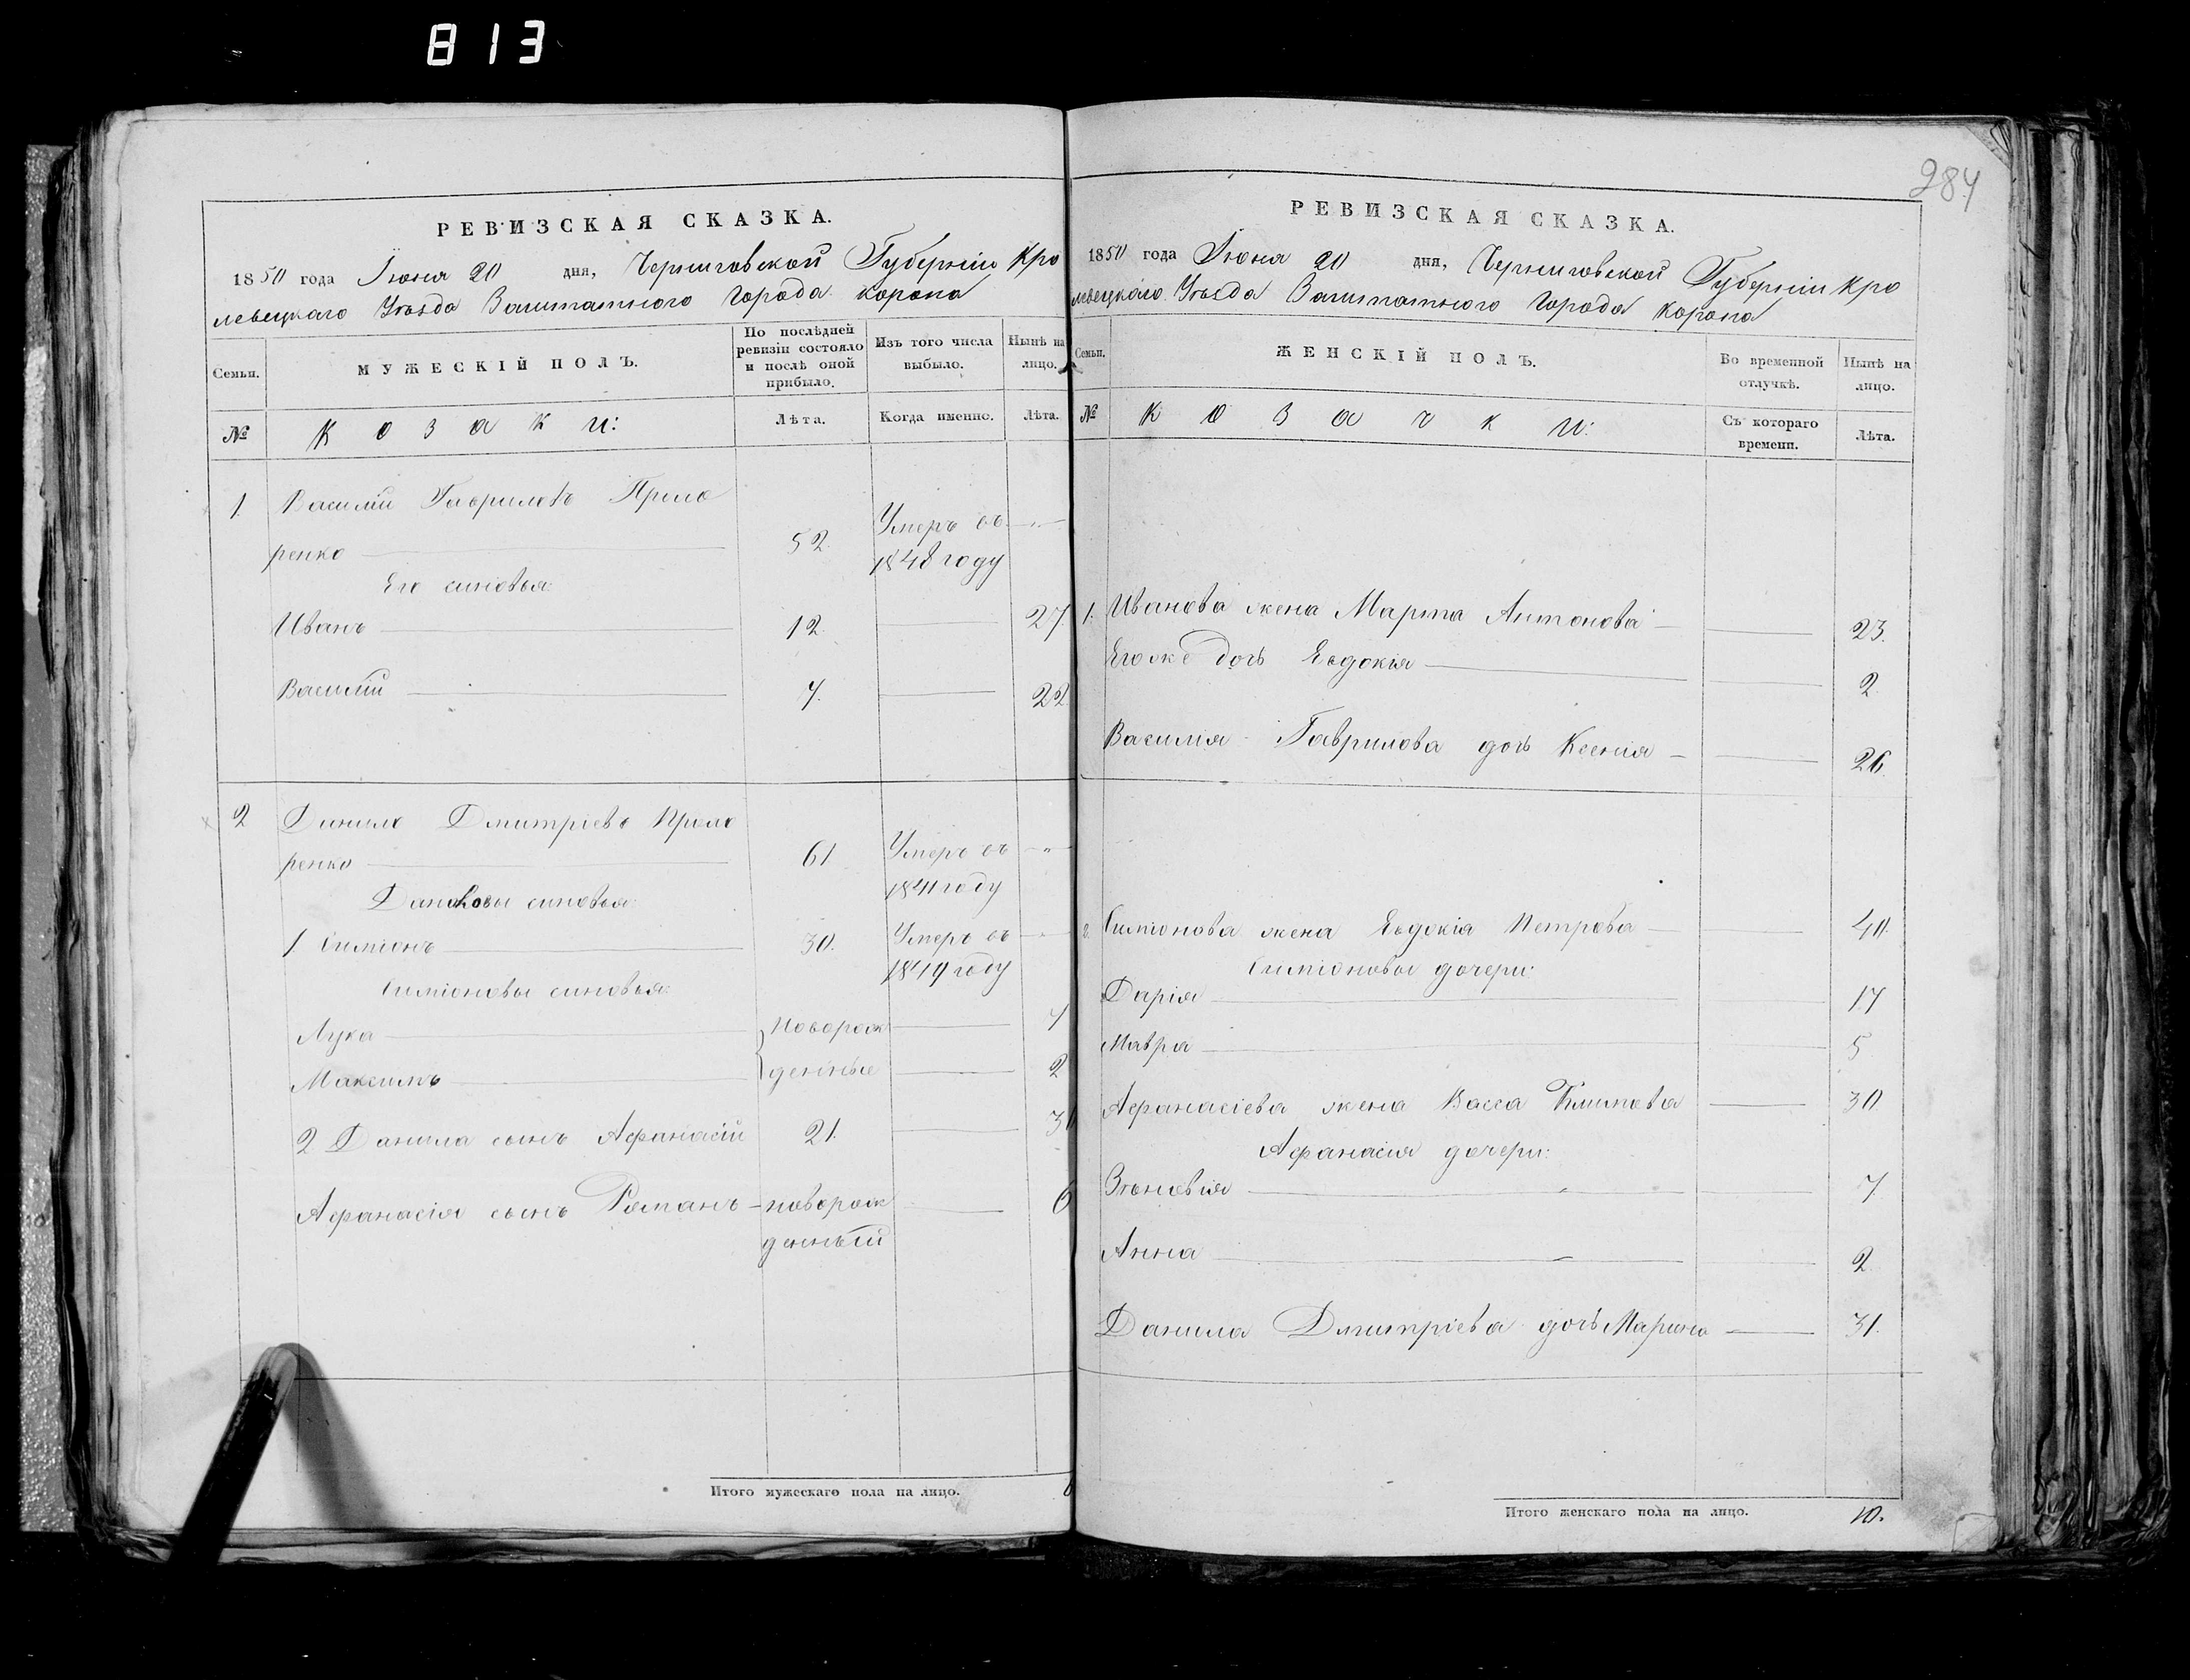 813
284
РЕВИЗСКАЯ СКАЗКА.
1850 года Іюня 20 дня, Черниговской Губерніи Кро
левецкаго Уѣзда Заштатного Города Коропа
Семьи.
МУЖЕСКІЙ ПОЛЪ.
По послѣдней ревизіи состояло и послѣ оной прибыло.
Изъ того числа выбыло.
Нынѣ на лицо.
№
Козаки:
Лѣта.
Когда именно.
Лѣта.
1. Василій Гавриловъ
ренко 52. Умеръ въ 1848 году
Его синовья:
Иванъ 12. 27.
Василій 7. 22.
2 Данило Дмитріевъ
ренко 61 Умеръ въ 1841 году
Даниловы синовья:
1. Симіонъ 30. Умеръ въ 1849 году
Симіоновы синовья:
Лука новорож 7
Максимъ денные 2
2 Данила сынъ Афанасій 21.
Афанасія сынъ Романъ новорож 6
денный
Итого мужескаго пола на лицо. 6
РЕВИЗСКАЯ СКАЗКА.
1850 года Іюня 20 дня, Черниговской Губерніи Кро
левецкаго Уѣзда Заштатного Города Коропа
Семьи.
ЖЕНСКІЙ ПОЛЪ.
Во временной отлучкѣ.
Нынѣ на лицо.
№
Козачки:
Съ котораго времени.
Лѣта.
1. Иванова жена Марта Антонова 23.
Его же дочь Евдокія 2.
Василія Гаврилова дочь Ксенія 26.
2. Симіонова жена Евдокія Петрова 40.
Симіоновы дочери:
Дарія 17
Мавра 5
Афанасіева жена Васса Климова 30.
Афанасія дочери:
Зѣновія 7.
Анна 2.
Данила Дмитріева дочь Марина 31.
Итого женскаго пола на лицо. 10.